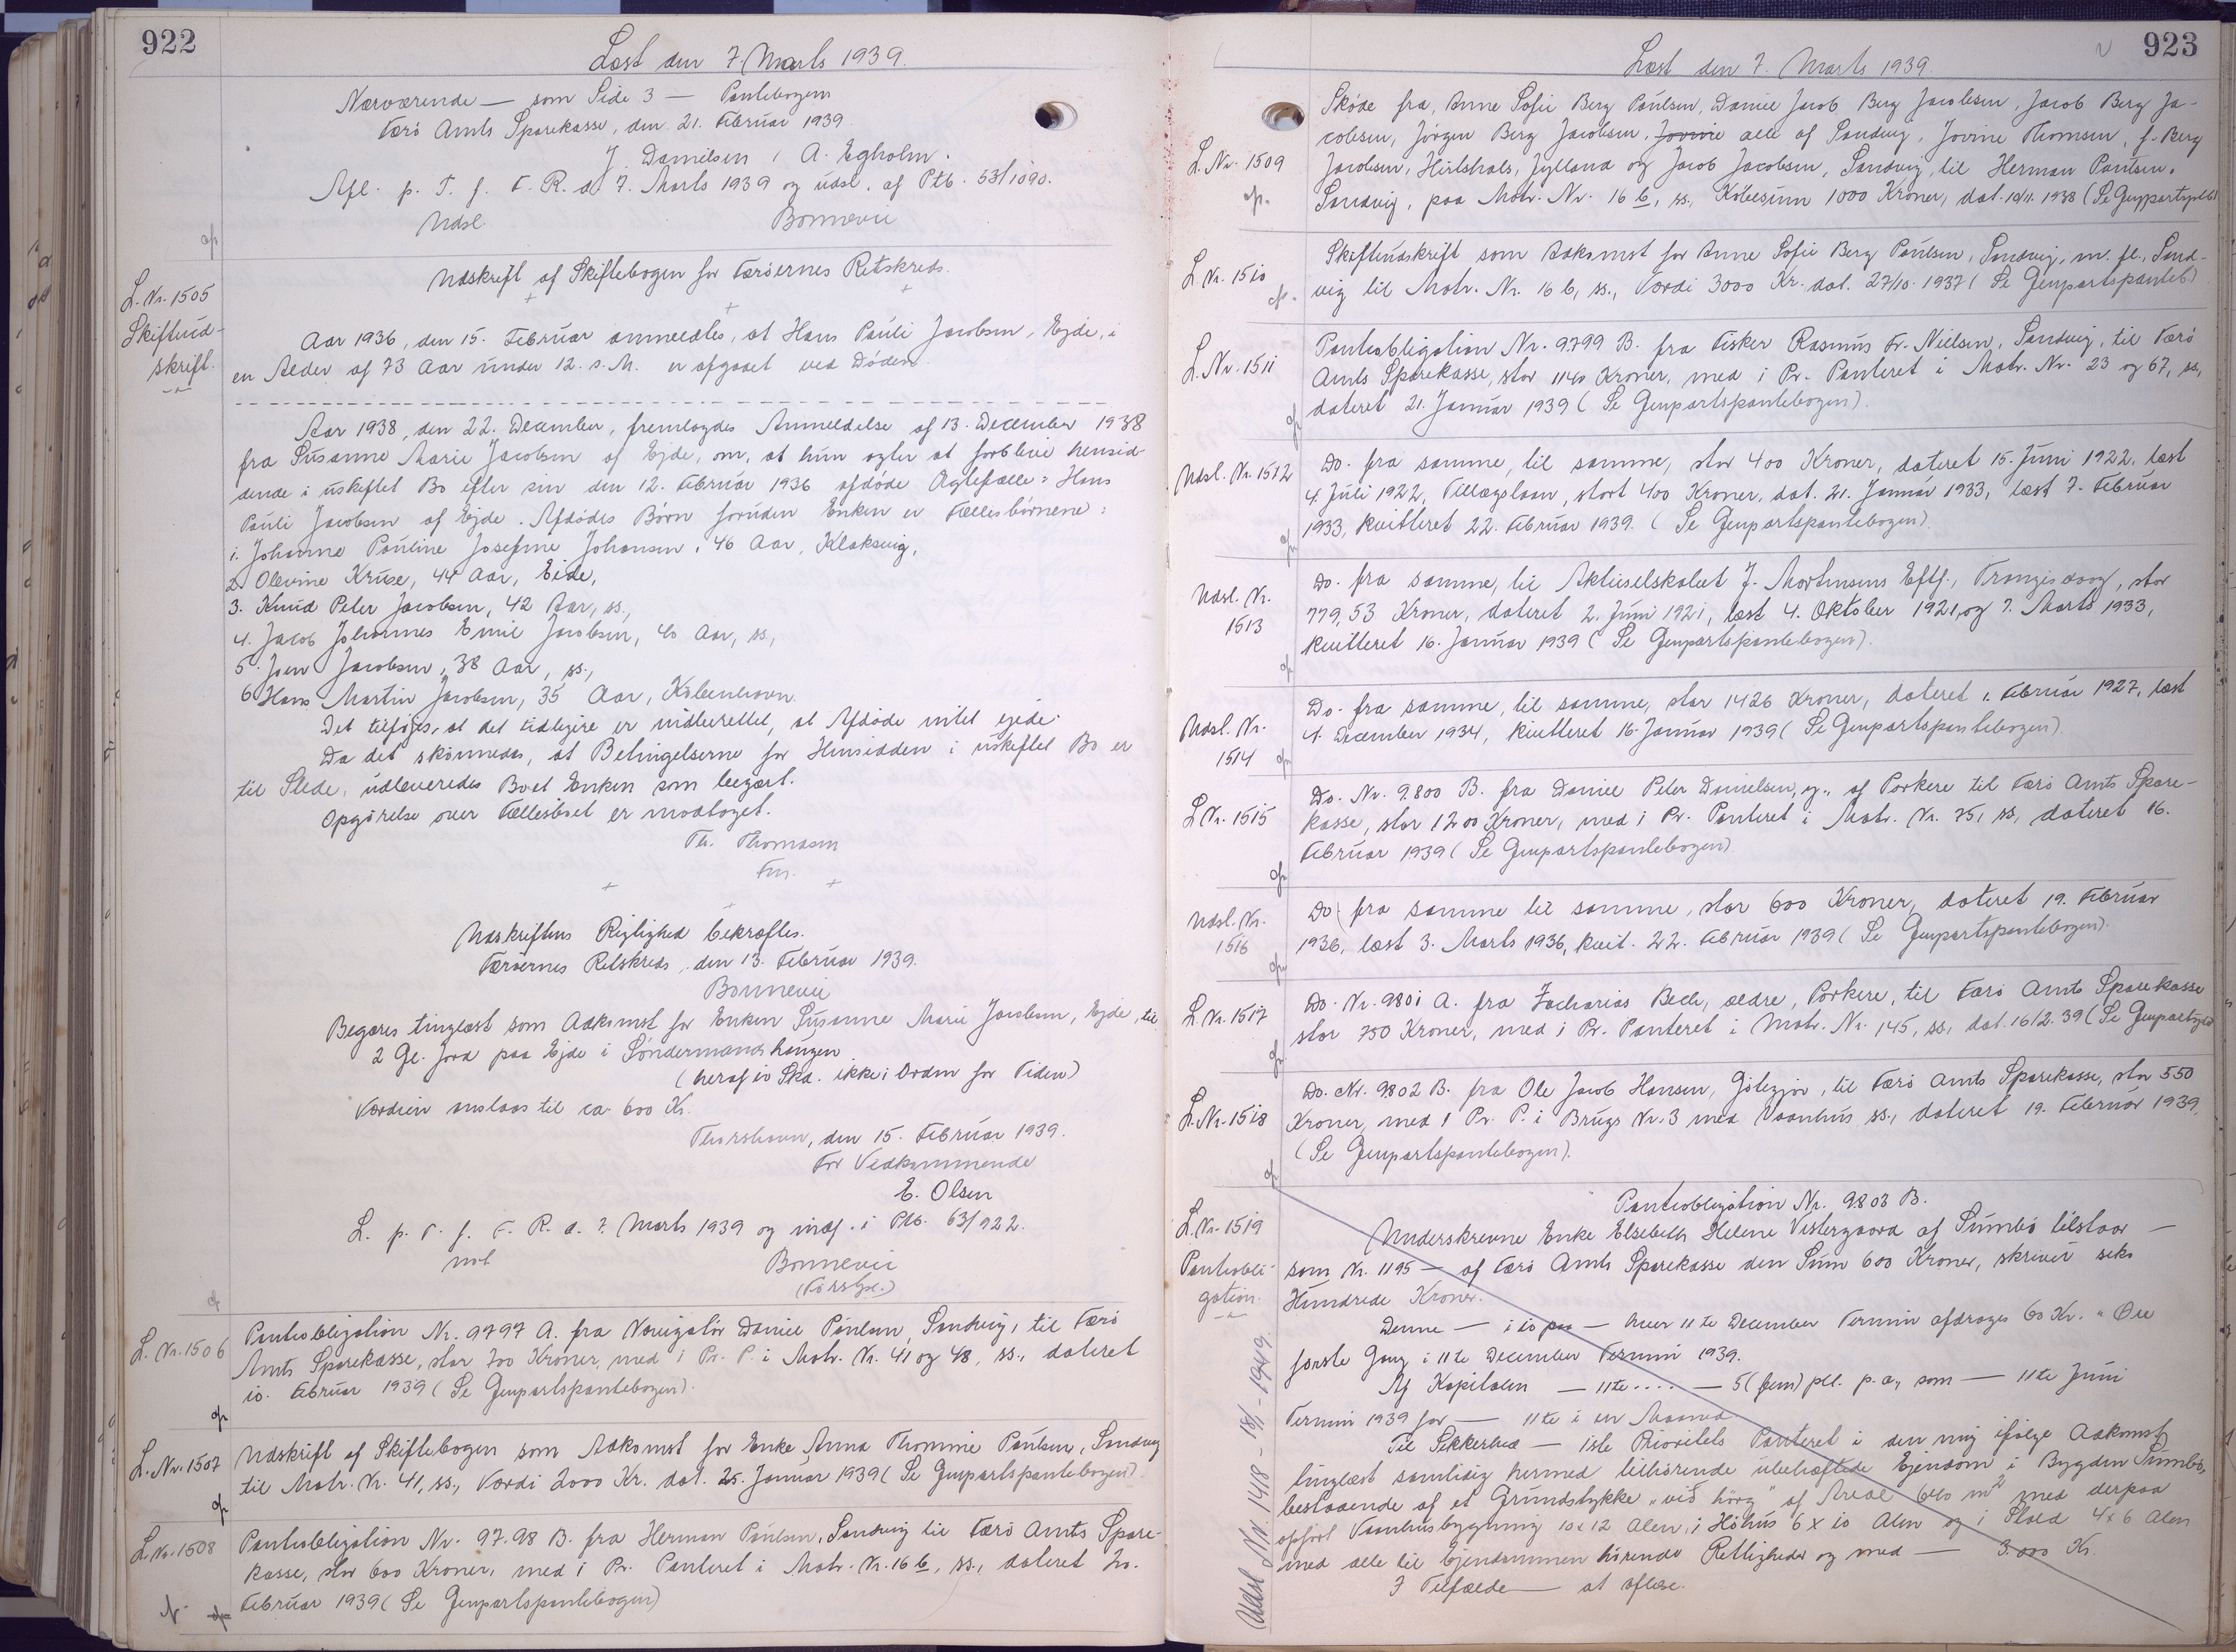 922
Læst den 7. Marts 1939.
Nærværende — som Side 3 — Pantebogen
Færø Amts Sparekasse, den 21. Februar 1939.
J. Danielsen / A. Egholm.
Afl. p. T. f. F. R. d. 7. Marts 1939 og udsl. af Ptb. 53/1090.
Udsl. Bonnevie
Udskrift af Skiftebogen for Færöernes Retskreds.
L. Nr. 1505
Skifteud-
skrift.
Aar 1936, den 15. Februar anmeldtes, at Hans Pauli Jacobsen, Ejde, i
en Alder af 73 Aar under 12. s. M. er afgaaet ved Döden
Aar 1938, den 22. December, fremlagdes Anmeldelse af 13. December 1938
fra Susanne Marie Jacobsen af Ejde, om, at hun agter at forblive hensid-
dende i uskiftet Bo efter sin den 12. Februar 1936 afdöde Ægtefælle: Hans
Pauli Jacobsen af Ejde. Afdödes Börn foruden Enken er Fællesbörnene:
1. Johanne Pauline Josefine Johansen, 46 Aar, Klaksvig,
2. Olevine Kruse, 44 Aar, Eide,
3. Knud Peter Jacobsen, 42 Aar, ss.,
4. Jacob Johannes Emil Jacobsen, 40 Aar, ss.,
5. Joen Jacobsen, 38 Aar, ss.,
6. Hans Martin Jacobsen, 35 Aar, Köbenhavn.
Det tilföjes, at det tidligere er indberettet, at Afdöde intet ejede.
Da det skönnedes, at Betingelserne for Hensidden i uskiftet Bo er
til Stede, udleveredes Boet Enken som begært.
Opgörelse over Fællesboet er modtaget.
Th. Thomasen
Fm.
Udskriftens Rigtighed bekræftes.
Færöernes Retskreds, den 13. Februar 1939.
Bonnevie
Begæres tinglæst som Adkomst for Enken Susanne Marie Jacobsen, Ejde, til
2 Gl. Jord paa Ejde i Söndermandshaugen
(heraf 10 Skd. ikke i Orden for Tiden)
Værdien anslaas til ca. 600 Kr.
Thorshavn, den 15. Februar 1939.
For Vedkommende
E. Olsen
L. p. T. f. F. R. d. 7. Marts 1939 og indf. i Ptb. 63/922.
not Bonnevie
L. Nr. 1506
Panteobligation Nr. 9797 A. fra Navigatör Daniel Poulsen, Sandvig, til Færö
Amts Sparekasse, stor 700 Kroner, med 1 Pr. P. i Matr. Nr. 41 og 48, ss., dateret
10. Februar 1939 (Se Genpartspantebogen).
L. Nr. 1507
Udskrift af Skiftebogen som Adkomst for Enke Anna Thomine Poulsen, Sandvig
til Matr. Nr. 41, ss., Værdi 2000 Kr. dat. 25. Januar 1939 (Se Genpartspantebogen).
L. Nr. 1508
Panteobligation Nr. 97.98 B. fra Herman Poulsen, Sandvig til Færö Amts Spare-
kasse, stor 600 Kroner, med 1 Pr. Panteret i Matr. Nr. 16 b, ss., dateret 20.
Februar 1939 (Se Genpartspantebogen)
923
Læst den 7. Marts 1939.
L. Nr. 1509
Sköde fra Anne Sofie Berg Poulsen, Daniel Jacob Berg Jacobsen, Jacob Berg Ja-
cobsen, Jörgen Berg Jacobsen, Jovine alle af Sandvig, Jovine Thomsen, f. Berg
Jacobsen, Hirtshals, Jylland og Jacob Jacobsen, Sandvig, til Herman Poulsen.
Sandvig, paa Matr. Nr. 16 b, ss., Köbesum 1000 Kroner, dat. 10/11. 1938 (Se Genpartsptb)
L. Nr. 1510
Skifteudskrift som Adkomst for Anne Sofie Berg Poulsen, Sandvig, m. fl., Sand-
vig til Matr. Nr. 16 b, ss., Værdi 3000 Kr. dat. 27/10. 1937 (Se Genpartspanteb)
L. Nr. 1511
Panteobligation Nr. 9799 B. fra Fisker Rasmus Fr. Nielsen, Sandvig, til Færö
Amts Sparekasse, stor 1140 Kroner, med 1 Pr. Panteret i Matr. Nr. 23 og 67, ss.,
dateret 21. Januar 1939 (Se Genpartspantebogen).
Udsl. Nr. 1512
Do. fra samme, til samme, stor 400 Kroner, dateret 15. Juni 1922, læst
4. Juli 1922, Tillægslaan, stort 400 Kroner, dat. 21. Januar 1933, læst 7. Februar
1933, kvitteret 22. Februar 1939. (Se Genpartspantebogen).
Udsl. Nr.
1513
Do. fra samme, til Aktieselskabet J. Mortensens Eftf., Trangisvaag, stor
779,53 Kroner, dateret 2. Juni 1921, læst 4. Oktober 1921, og 7. Marts 1933,
kvitteret 16. Januar 1939 (Se Genpartspantebogen).
Udsl. Nr.
1514
Do. fra samme, til samme, stor 1426 Kroner, dateret 1. Februar 1927, læst
4. December 1934, kvitteret 16. Januar 1939 (Se Genpartspantebogen)
L Nr. 1515
Do. Nr. 9800 B. fra Daniel Peter Danielsen, yg., af Porkere til Færö Amts Spare-
kasse, stor 1200 Kroner, med 1 Pr. Panteret i Matr. Nr. 75, ss, dateret 16.
Februar 1939 (Se Genpartspantebogen)
Udsl. Nr.
1516
Do fra samme til samme, stor 600 Kroner, dateret 19. Februar
1936, læst 3. Marts 1936, kvit. 22. Februar 1939 (Se Genpartspantebogen).
L. Nr. 1517
Do. Nr. 9801 A. fra Zacharias Bech, ældre, Porkere, til Færö Amts Sparekasse
stor 750 Kroner, med 1 Pr. Panteret i Matr. Nr. 145, ss, dat. 16/2. 39 (Se Genpartsptb)
L. Nr. 1518
Do. Nr. 9802 B. fra Ole Jacob Hansen, Götegjov, til Færö Amts Sparekasse, stor 550
Kroner, med 1 Pr. P. i Brugs Nr. 3 med Vaanhus ss., dateret 19. Februar 1939
(Se Genpartspantebogen).
L. Nr. 1519
Panteobli-
gation.
Panteobligation Nr. 9803 B.
Underskrevne Enke Elsebeth Helene Vestergaard af Sumbö tilstaar —
som Nr. 1195 — af Færö Amts Sparekasse den Sum 600 Kroner, skriver seks
Hundrede Kroner.
Denne — i 10 paa — hver 11te December Termin afdrages 60 Kr. " Øre
förste Gang i 11te December Termin 1939.
Af Kapitalen — 11te .... — 5 (fem) pCt. p. a., som — 11te Juni
Termin 1939 for — 11te i en Maaned
Til Sikkerhed — 1ste Prioritets Panteret i den mig ifölge Adkomst
tinglæst samtidig hermed tilhörende ubehæftede Ejendom i Bygden Sumbö,
bestaaende af et Grundstykke "við hörg" af Areal 640 m² med derpaa
opfört Vaanhusbygning 10x12 Alen, i Höhus 6 x 10 Alen og i Stald 4x6 Alen
med alle til Ejendommen hörende Rettigheder og med — 3.000 Kr.
I Tilfælde — at aflæse.
Udsl Nr 1418 - 18/1 - 1949